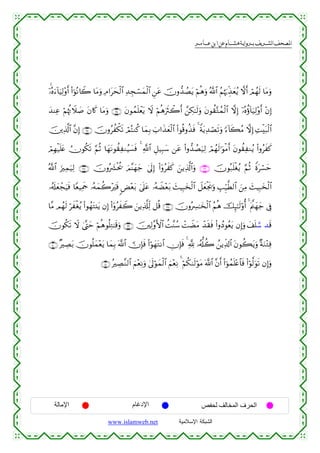 المصحف الشريف برواية هشام عن ابن عامر
وَمَا لَهُمْ أَلَّا يُعَذِّبَهُمُ ٱللَّهُ وَهُمْ يَصُدُّونَ عَنِ ٱلْمَسْجِدِ ٱلْحَرَامِ وَمَا كَانُوٓا۟ أَوْلِيَآءَهُۥٓ ۚ
إِنْ أَوْلِيَآؤُهُۥٓ إِلَّا ٱلْمُتَّقُونَ وَلَٰكِنَّ أَكْثَرَهُمْ لَا يَعْلَمُونَ وَمَا كَانَ صَلَاتُهُمْ عِندَ
ٱلْبَيْتِ إِلَّا مُكَآءً وَتَصْدِيَةً ۚ فَذُوقُوا۟ ٱلْعَذَابَ بِمَا كُنتُمْ تَكْفُرُونَ إِنَّ ٱلَّذِينَ
كَفَرُوا۟ يُنفِقُونَ أَمْوَٰلَهُمْ لِيَصُدُّوا۟ عَن سَبِيلِ ٱللَّهِ ۚ فَسَيُنفِقُونَهَا ثُمَّ تَكُونُ عَلَيْهِمْ
حَسْرَةً ثُمَّ يُغْلَبُونَ وَٱلَّذِينَ كَفَرُوٓا۟ إِلَىٰ جَهَنَّمَ يُحْشَرُونَ لِيَمِيزَ ٱللَّهُ
ٱلْخَبِيثَ مِنَ ٱلطَّيِّبِ وَيَجْعَلَ ٱلْخَبِيثَ بَعْضَهُۥ عَلَىٰ بَعْضٍ فَيَرْكُمَهُۥ جَمِيعًا فَيَجْعَلَهُۥ
فِى جَهَنَّمَ ۚ أُو۟لَٰٓئِكَ هُمُ ٱلْخَٰسِرُونَ قُل لِّلَّذِينَ كَفَرُوٓا۟ إِن يَنتَهُوا۟ يُغْفَرْ لَهُم مَّا
قَد سَّلَفَ وَإِن يَعُودُوا۟ فَقَدْ مَضَتْ سُنَّتُ ٱلْأَوَّلِينَ وَقَٰتِلُوهُمْ حَتَّىٰ لَا تَكُونَ
فِتْنَةٌ وَيَكُونَ ٱلدِّينُ كُلُّهُۥ لِلَّهِ ۚ فَإِنِ ٱنتَهَوْا۟ فَإِنَّ ٱللَّهَ بِمَا يَعْمَلُونَ بَصِيرٌ
وَإِن تَوَلَّوْا۟ فَٱعْلَمُوٓا۟ أَنَّ ٱللَّهَ مَوْلَىٰكُمْ ۚ نِعْمَ ٱلْمَوْلَىٰ وَنِعْمَ ٱلنَّصِيرُ
الحرف المخالف لحفص الإدغام الإمالة
الشبكة الإسلامية www.islamweb.net